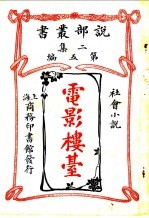 説部叢書
二集
第五編
社會小説
電影樓臺
上海商務印書館發行